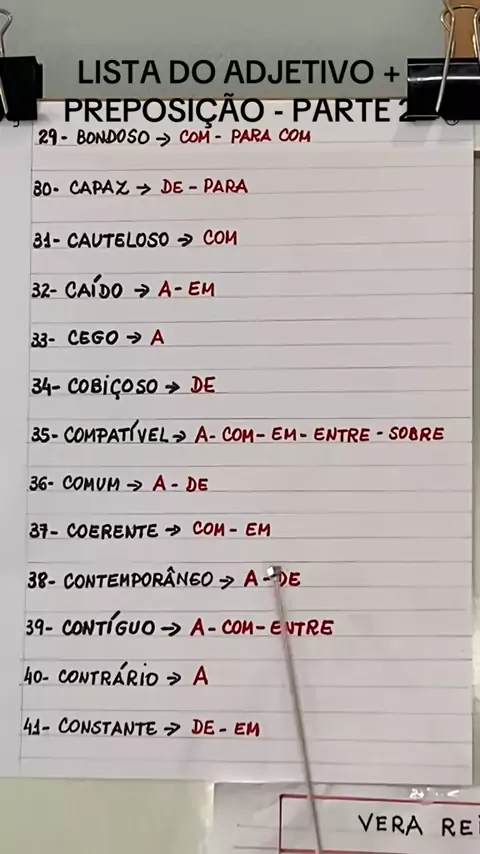 LISTA DO ADJETIVO +
PREPOSIÇÃO - PARTE 2
29- BONDOSO → COM - PARA COM
30- CAPAZ → DE - PARA
31- CAUTELOSO → COM
32- CAÍDO → A - EM
33- CEGO → A
34- COBIÇOSO → DE
35- COMPATÍVEL → A - COM - EM - ENTRE - SOBRE
36- COMUM → A - DE
37- COERENTE → COM - EM
38- CONTEMPORÂNEO → A - DE
39- CONTÍGUO → A - COM - ENTRE
40- CONTRÁRIO → A
41- CONSTANTE → DE - EM
VERA